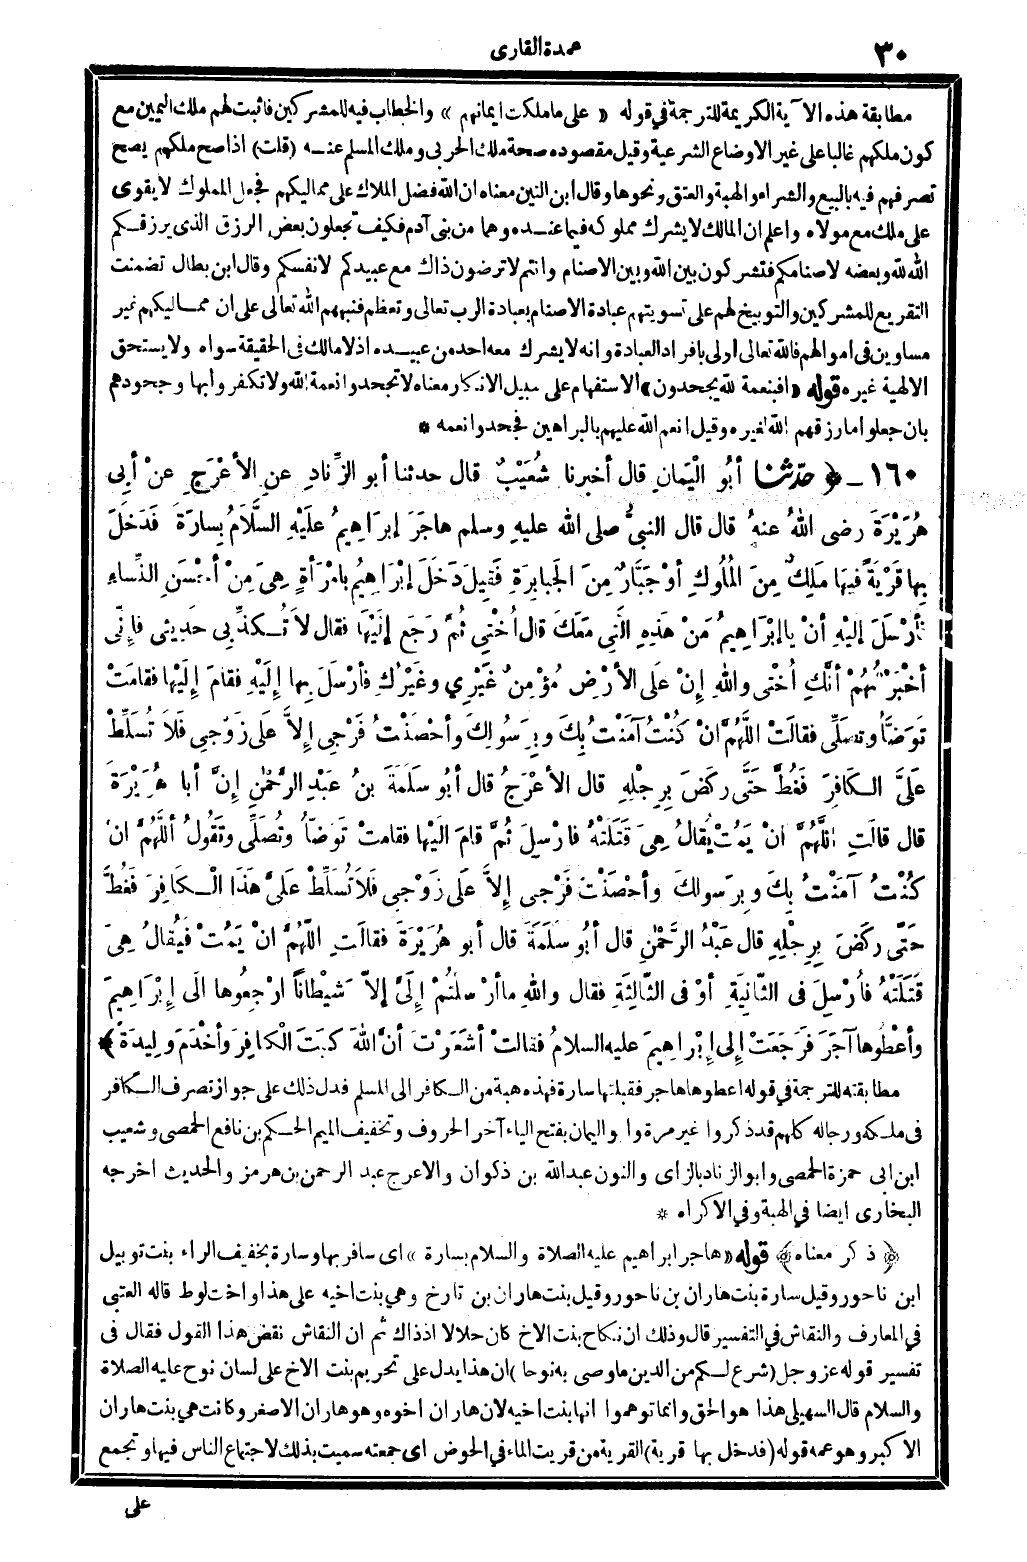 ٣٠
عمدة القارى
مطابقة هذه الآية الكريمة للترجمة في قوله « على ما ملكت ايمانهم » والخطاب فيه للمشركين فاثبت لهم ملك اليمين مع
كون ملكهم غالبا على غير الاوضاع الشرعية وقيل مقصوده صحة ملك الحربى وملك المسلم عنه (قلت) اذا صح ملكهم يصح
تصرفهم فيه بالبيع والشراء والهبة والعتق ونحوها وقال ابن التين معناه ان الله فضل الملاك على مماليكهم فجعل المملوك لا يقوى
على ملك مع مولاه واعلم ان المالك لا يشرك مملوكه فيما عنده وهما من بنى آدم فكيف تجعلون بعض الرزق الذى يرزقكم
الله لله وبعضه لاصنامكم فتشركون بين الله وبين الاصنام وانتم لا ترضون ذاك مع عبيدكم لانفسكم وقال ابن بطال تضمنت
التقريع للمشركين والتوبيخ لهم على تسويتهم عبادة الاصنام بعبادة الرب تعالى وتعظم فنبههم الله تعالى على ان مماليكهم غير
مساوين فى اموالهم فالله تعالى اولى بافراد العبادة وانه لا يشرك معه احد من عبيده اذ لا مالك فى الحقيقة سواه ولا يستحق
الالهية غيره قوله «افبنعمة لله يجحدون» الاستفهام على سبيل الانكار معناه لا تجحدوا نعمة الله ولا تكفروا بها وجحودهم
بان جعلوا ما رزقهم الله لغيره وقيل انعم الله عليهم بالبراهين فجحدوا نعمه *
١٦٠ ـ ﴿ حَدَّثَنَا أبُو الْيَمانِ قال أخبرنا شُعَيْبٌ قال حدثنا أبو الزِّنادِ عنِ الأعْرَجِ عنْ أبِى
هُرَيْرَةَ رضى اللهُ عنهُ قال قال النبىُّ صلى الله عليهِ وسلم هاجَرَ إبرَاهِيمُ علَيْهِ السَّلاَمُ بِسارَةَ فَدَخَلَ
بِها قَرْيَةً فيها مَلِكٌ مِنَ المُلُوكِ أوْ جَبَّارٌ مِنَ الجَبابِرَةِ فَقِيلَ دَخَلَ إبْرَاهِيمُ بِامْرَأةٍ هِىَ مِنْ أحْسَنِ النِّساءِ
فأرْسَلَ إليْهِ أنْ يا إبْرَاهِيمُ مَنْ هَذِهِ الَّتِى مَعَكَ قال أُخْتِى ثُمَّ رَجَعَ إلَيْها فقال لاَ تُكذِّبِى حَدِيثى فإنِّى
أخْبَرْتُهُمْ أنَّكِ أُخْتِى واللهِ إنْ على الأرْضِ مُؤْمِنٌ غَيْرِي وغَيْرُكِ فأرْسَلَ بِها إلَيْهِ فقامَ إلَيْها فقامَتْ
تَوَضَّأُ وتُصَلِّى فقالَتْ اللَّهُمَّ انْ كُنْتُ آمَنْتُ بِكَ وبِرَسُولِكَ وأحْصَنْتُ فَرْجِى إلاَّ على زَوْجِى فَلاَ تُسَلِّطْ
عَلَىَّ الكافِرَ فَغُطَّ حَتَّى رَكَضَ بِرِجْلِهِ قال الأعْرَجُ قال أبُو سَلَمَةَ بنُ عَبْدِ الرَّحْمٰنِ إنَّ أبا هُرَيْرَةَ
قال قالَتِ اللَّهُمَّ انْ يَمُتْ يُقالُ هِىَ قَتَلَتْهُ فأرْسِلَ ثُمَّ قامَ الَيْها فقامَتْ تَوَضّأُ وتُصَلِّى وتَقُولُ أللَّهُمَّ انْ
كُنْتُ آمَنْتُ بِكَ وبِرَسولِكَ وأحْصَنْتُ فَرْجِى إلاَّ على زَوْجِى فَلاَ تُسَلِّطْ عَلَىَّ هَذَا الْكافِرَ فَغُطَّ
حَتَّى رَكَضَ بِرِجْلِهِ قال عَبْدُ الرَّحْمٰنِ قال أبُو سَلَمَةَ قال أبو هُرَيْرَةَ فقالَتِ اللَّهُمَّ انْ يَمُتْ فَيُقالُ هِىَ
قَتَلَتْهُ فأُرْسِلَ فى الثَّانِيَةِ أوْ فى الثَّالِثَةِ فقال واللهِ ما أرْسَلْتُمْ إلَىَّ إلاّ شَيْطاناً ارْجِعُوها الى إبْرَاهِيمَ
وأعْطُوها آجَرَ فَرَجَعَتْ إلى إبْرَاهِيمَ عليه السلامُ فقالتْ أشَعَرْتَ أنَّ اللهَ كَبَتَ الْكافِرَ وأخْدَمَ وَلِيدَةً ﴾*
مطابقته للترجمة فى قوله اعطوها هاجر فقبلتها سارة فهذه هبة من الكافر الى المسلم فدل ذلك على جواز تصرف الكافر
فى ملكه ورجاله كلهم قد ذكروا غير مرة وا واليمان بفتح الياء آخر الحروف وتخفيف الميم الحكم بن نافع الحمصى وشعيب
ابن ابى حمزة الحمصى وابو الزناد بالزاى والنون عبد الله بن ذكوان والاعرج عبد الرحمن بن هرمز والحديث اخرجه
البخارى ايضا فى الهبة وفى الاكراه *
﴿ ذكر معناه ﴾ قوله «هاجر ابراهيم عليه الصلاة والسلام بسارة» اى سافر بها وسارة بتخفيف الراء بنت توبيل
ابن ناحور وقيل سارة بنت هاران بن ناحور وقيل بنت هاران بن تارخ وهى بنت اخيه على هذا واخت لوط قاله العتبى
فى المعارف والنقاش فى التفسير قال وذلك ان نكاح بنت الاخ كان حلالا اذذاك ثم ان النقاش نقض هذا القول فقال فى
تفسير قوله عز وجل (شرع لكم من الدين ما وصى به نوحا) ان هذا يدل على تحريم بنت الاخ على لسان نوح عليه الصلاة
والسلام قال السهيلى هذا هو الحق وانما توهموا انها بنت اخيه لان هاران اخوه وهو هاران الاصغر وكانت هى بنت هاران
الاكبر وهو عمه قوله (فدخل بها قرية) القرية من قريت الماء فى الحوض اى جمعته سميت بذلك لاجتماع الناس فيها وتجمع
على